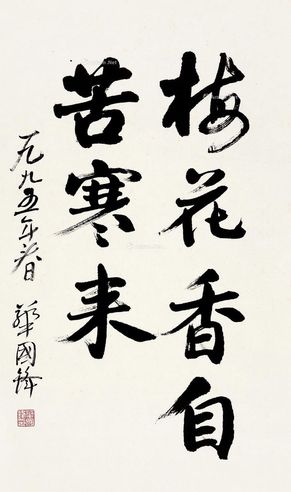 梅花香自
苦寒来
一九九五年春日
華國鋒